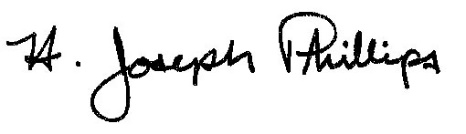 H. Joseph Phillips